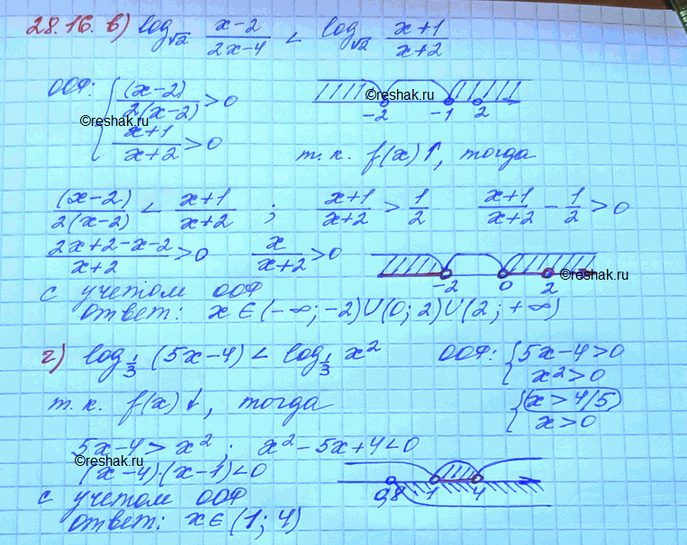 28.16. в) log√2 (x-2)/(2x-4) < log√2 (x+1)/(x+2)
ООФ: { (x-2)/(2(x-2)) > 0
(x+1)/(x+2) > 0
-2 -1 2
©reshak.ru
©reshak.ru
т. к. f(x)↑, тогда
(x-2)/(2(x-2)) < (x+1)/(x+2) ; (x+1)/(x+2) > 1/2 (x+1)/(x+2) - 1/2 > 0
(2x+2-x-2)/(x+2) > 0 x/(x+2) > 0
-2 0 2
©reshak.ru
с учетом ООФ
ответ: x ∈ (-∞; -2) ∪ (0; 2) ∪ (2; +∞)
г) log1/3 (5x-4) < log1/3 x² ООФ: { 5x-4>0
x²>0
т. к. f(x)↓, тогда { x > 4/5
x > 0
5x-4 > x² ; x²-5x+4<0
©reshak.ru
(x-4)·(x-1)<0
0,8 1 4
с учетом ООФ
ответ: x ∈ (1; 4)